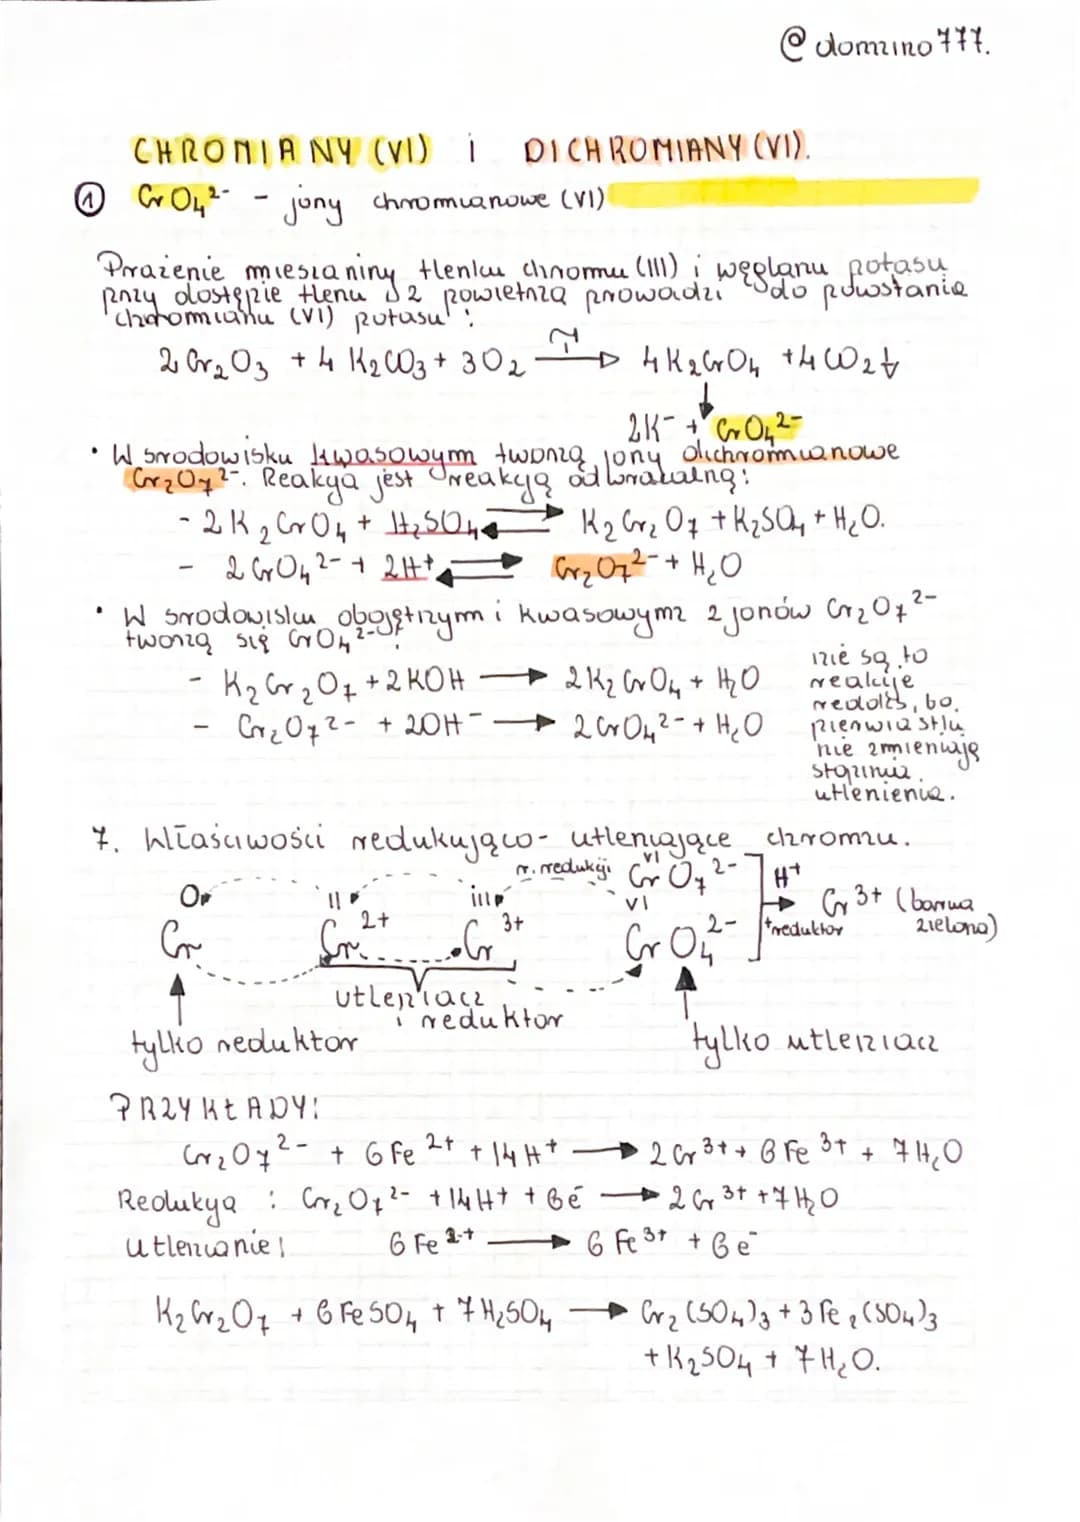 @domino777.
CHROMIANY (VI) i DICHROMIANY (VI).
① CrO₄²⁻ - jony chromianowe (VI)
Prażenie mieszaniny tlenku chromu (III) i węglanu potasu
przy dostępie tlenu z powietrza prowadzi do powstania
chromianu (VI) potasu :
2 Cr₂O₃ + 4 K₂CO₃ + 3O₂ → 4K₂CrO₄ + 4CO₂↑
2K⁻ + CrO₄²⁻
• W środowisku kwasowym tworzą jony dichromianowe
Cr₂O₇²⁻. Reakcja jest reakcją odwracalną:
- 2K₂CrO₄ + H₂SO₄ ⇄ K₂Cr₂O₇ + K₂SO₄ + H₂O.
- 2CrO₄²⁻ + 2H⁺ ⇄ Cr₂O₇²⁻ + H₂O
• W środowisku obojętnym i kwasowym z jonów Cr₂O₇²⁻
tworzą się CrO₄²⁻:
- K₂Cr₂O₇ + 2KOH → 2K₂CrO₄ + H₂O
- Cr₂O₇²⁻ + 2OH⁻ → 2CrO₄²⁻ + H₂O
nie są to
reakcje
redoks, bo
pierwiastki
nie zmieniają
stopnia
utlenienia.
7. Właściwości redukująco-utleniające chromu.
r. redukcji
0 II III VI VI
Cr Cr²⁺ Cr³⁺ CrO₇²⁻ CrO₄²⁻
H⁺
+reduktor
→ Cr³⁺ (barwa
zielona)
utleniacz
i reduktor
tylko reduktor
tylko utleniacz
PRZYKŁADY:
Cr₂O₇²⁻ + 6Fe²⁺ + 14H⁺ → 2Cr³⁺ + 6Fe³⁺ + 7H₂O
Redukcja : Cr₂O₇²⁻ + 14H⁺ + 6e⁻ → 2Cr³⁺ + 7H₂O
Utlenianie: 6Fe²⁺ → 6Fe³⁺ + 6e⁻
K₂Cr₂O₇ + 6FeSO₄ + 7H₂SO₄ → Cr₂(SO₄)₃ + 3Fe₂(SO₄)₃
+ K₂SO₄ + 7H₂O.